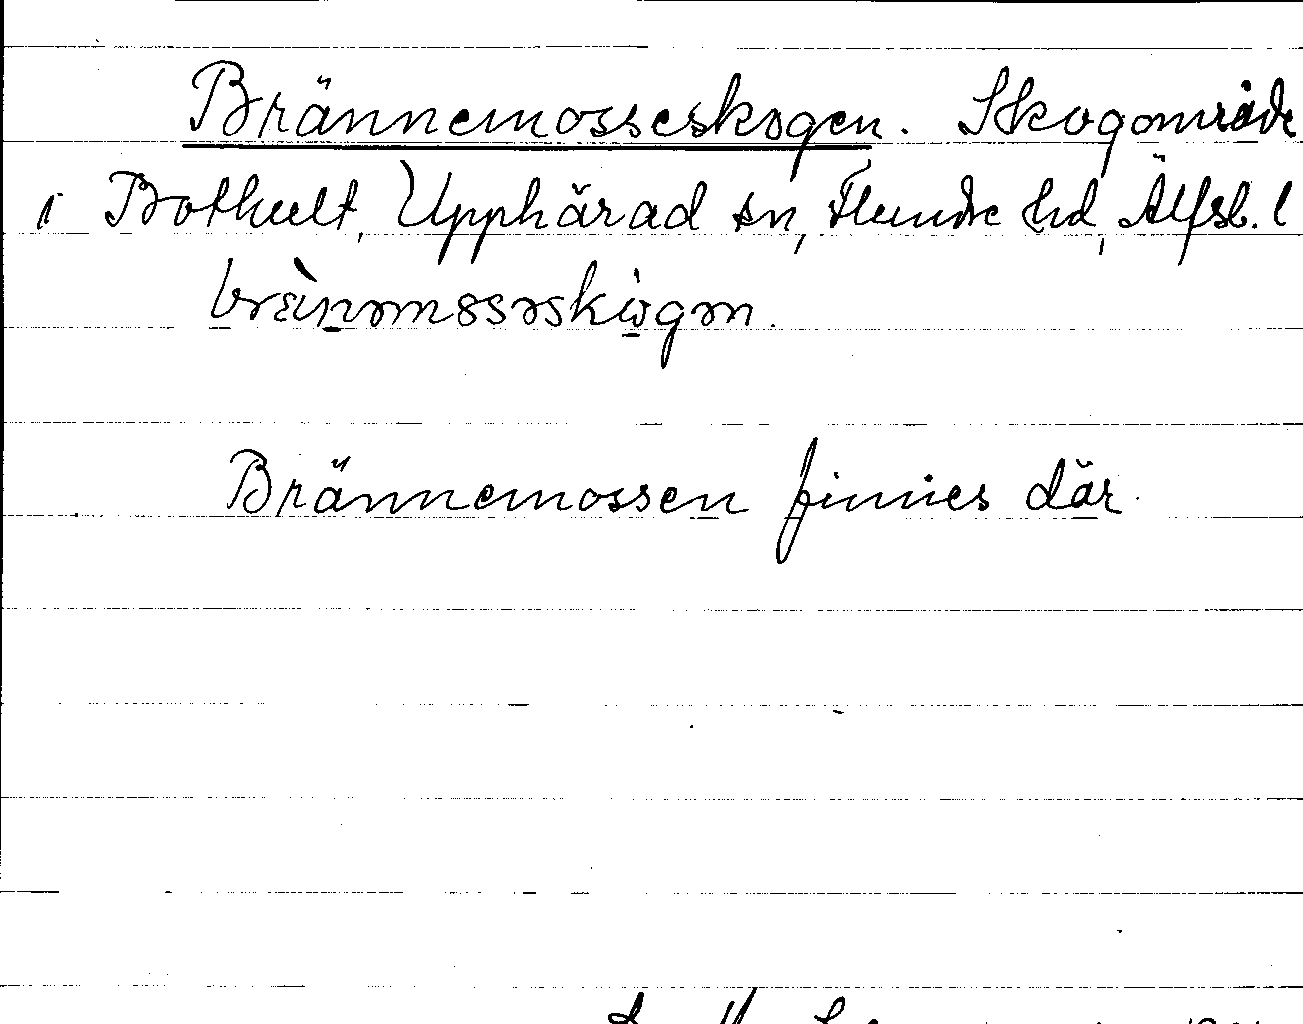 Brännemosseskogen. Skogområde
i Bothult, Upphärad sn, Flundre hd, Älfsb. l
Brännemossen finnes där.